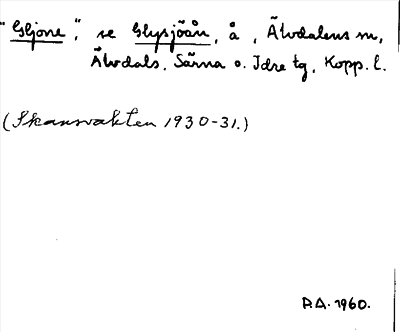 "Gljone", se Glysjöån, å, Älvdalens sn,
Älvdals, Särna o. Idre tg, Kopp. l.
(Skansvakten 1930-31.)
R A. 1960.